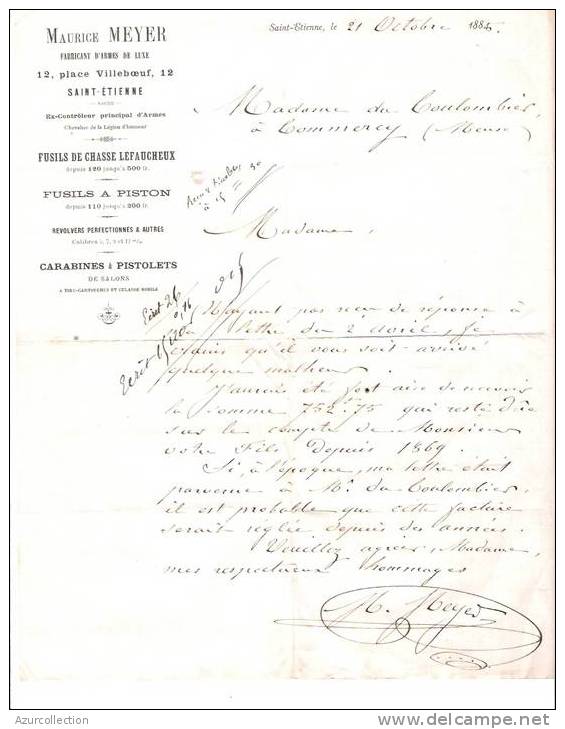 MAURICE MEYER
FABRICANT D'ARMES DE LUXE
12, place Villebœuf, 12
SAINT-ÉTIENNE
Ex-Contrôleur principal d'Armes
Chevalier de la Légion d'honneur
FUSILS DE CHASSE LEFAUCHEUX
depuis 120 jusqu'à 500 fr.
FUSILS A PISTON
depuis 110 jusqu'à 200 fr.
REVOLVERS PERFECTIONNÉS & AUTRES
Calibres 5, 7, 9 et 12 m/m
CARABINES & PISTOLETS
DE SALONS
A TIRS-CARTOUCHES ET CULASSE MOBILE
Saint-Etienne, le 21 Octobre 188
Madame du Coulombier,
à Commercy (Meuse)
Madame,
N'ayant pas reçu de réponse à
lettre du 2 avril, je
crains qu'il vous soit arrivé
quelque malheur.
J'aurais été fort aise de recevoir
la somme 752 75 qui reste dûe
sur le compte de Monsieur
votre Fils depuis 1869.
Si, à l'époque, ma lettre était
parvenue à Mr. du Coulombier,
il est probable que cette facture
serait réglée depuis des années.
Veuillez agréer, Madame,
mes respectueux hommages
M. Meyer
Ecrit 26
Ecrit 15
Azurcollection
www.delcampe.net